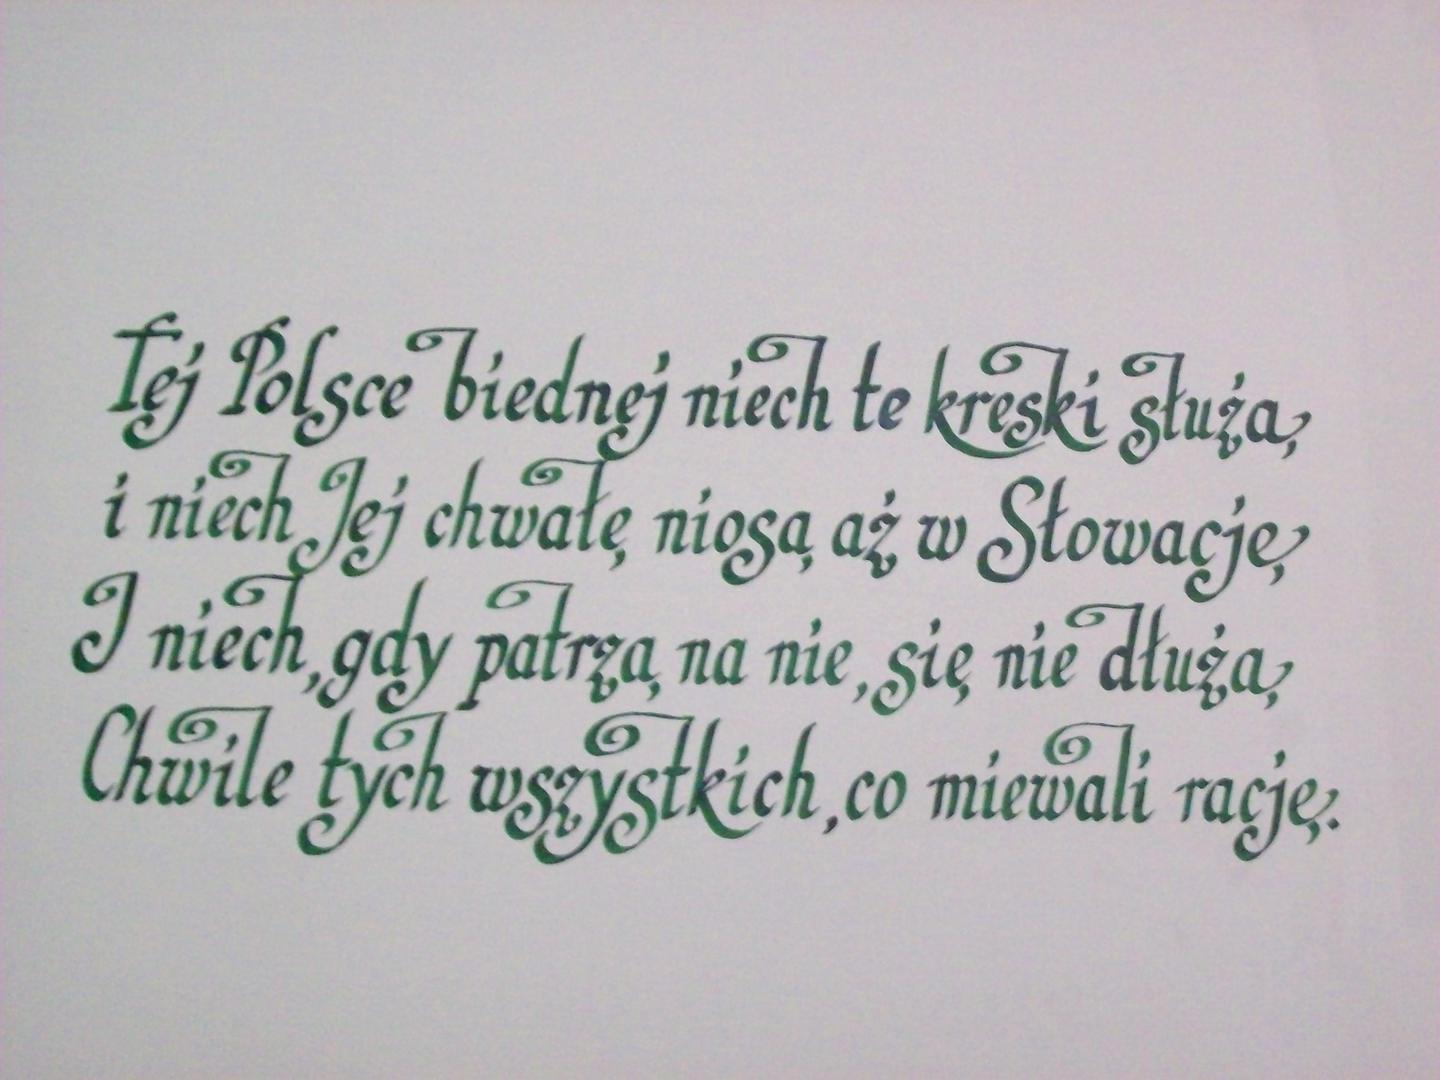 Tej Polsce biednej niech te kreski służą,
i niech Jej chwałę niosą aż w Słowację,
I niech, gdy patrzą na nie, się nie dłużą,
Chwile tych wszystkich, co miewali rację.